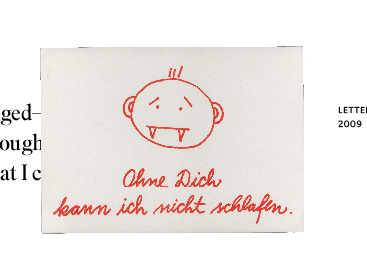 ged–
ough
at I c
Ohne Dich
kann ich nicht schlafen.
LETTE
2009